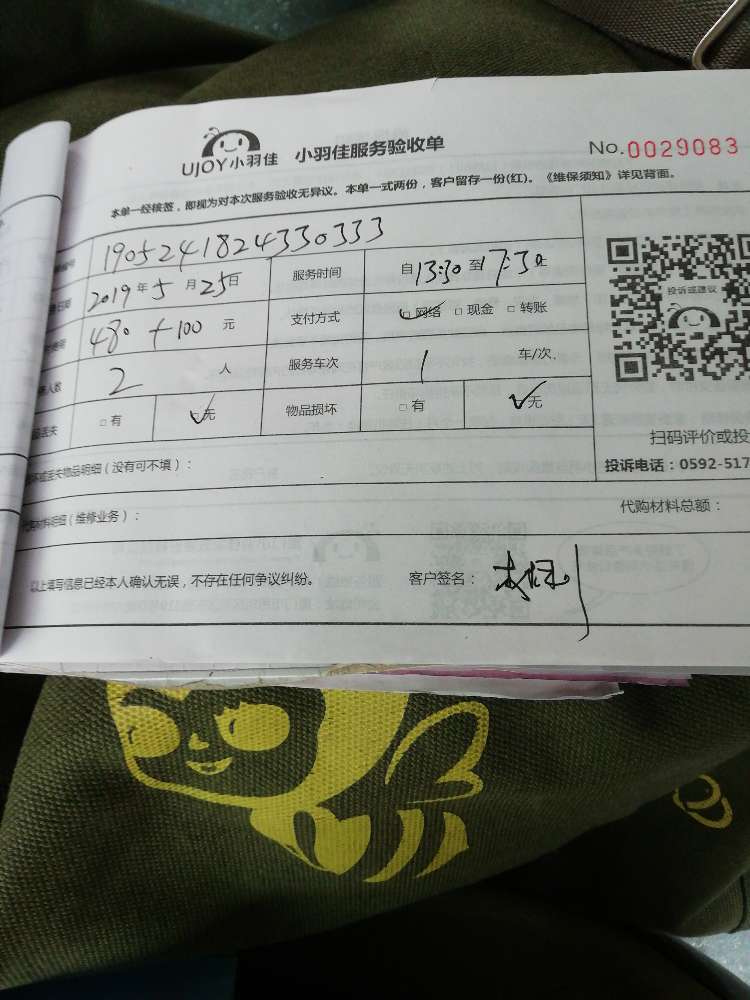 UJOY小羽佳 小羽佳服务验收单 No.0029083
本单一经核签，即视为对本次服务验收无异议。本单一式两份，客户留存一份(红)。《维保须知》详见背面。
编号 1905241824330333
日期 2019年5月25日 服务时间 自13:30至17:30止
480+100元 支付方式 □网络 □现金 □转账
人数 2人 服务车次 1车/次.
丢失 □有 □无 物品损坏 □有 □无
投诉或建议
扫码评价或投
投诉电话：0592-517
丢失物品明细（没有可不填）：
代购材料明细（维修业务）： 代购材料总额：
以上填写信息已经本人确认无误，不存在任何争议纠纷。 客户签名：